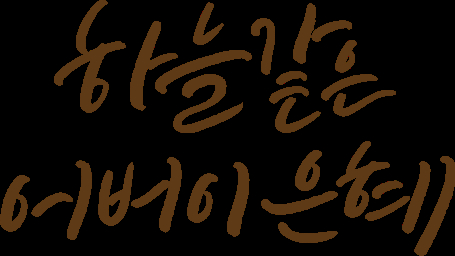 하늘같은
어버이 은혜